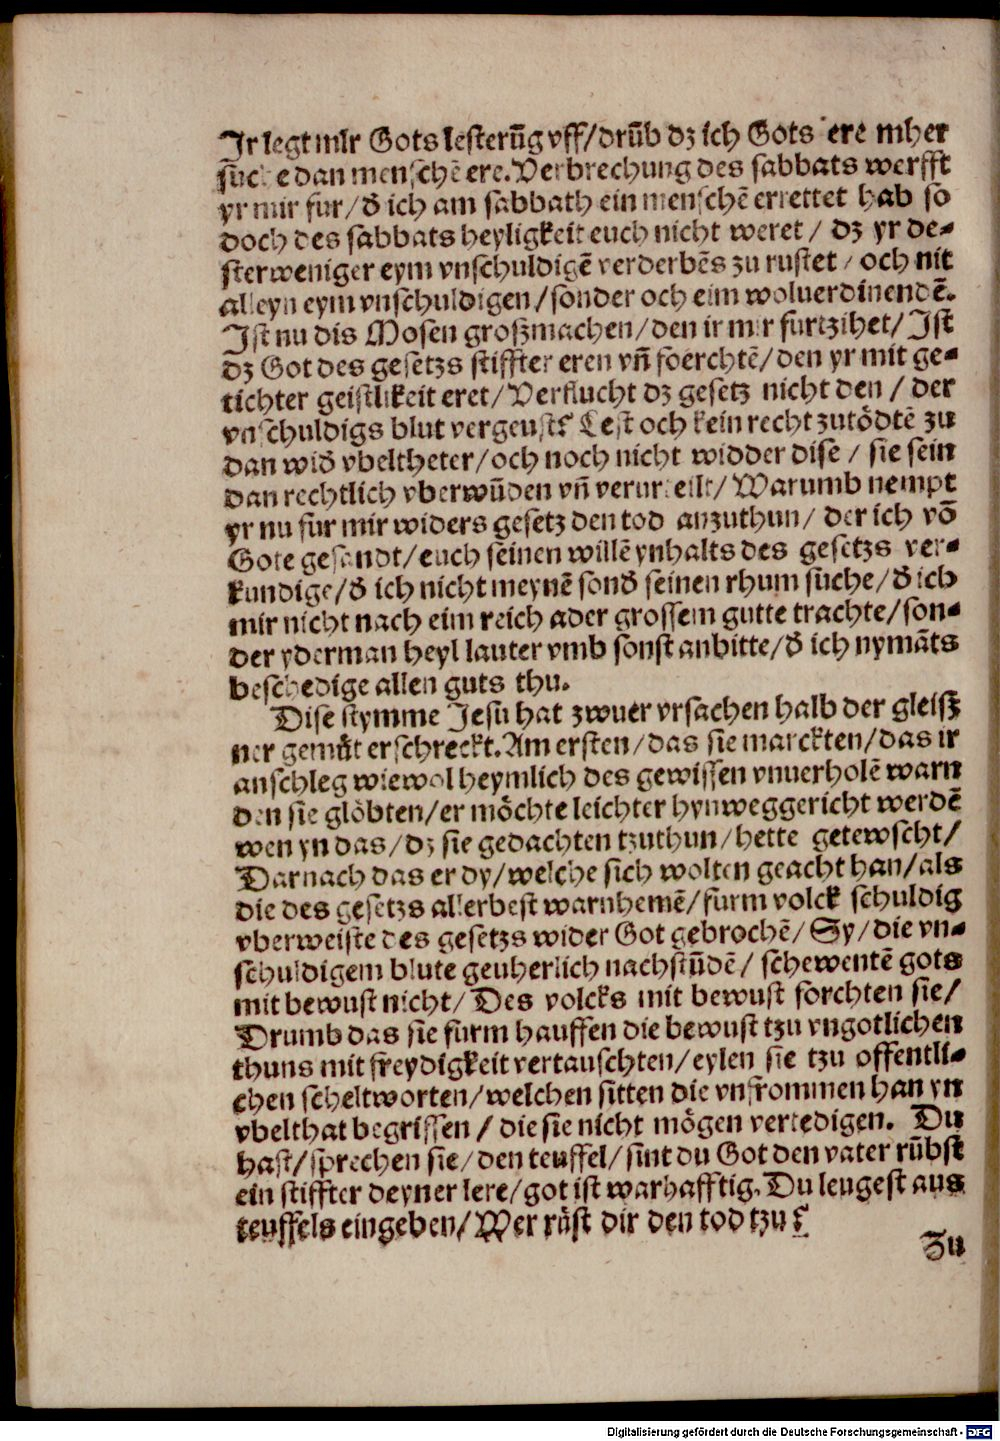 Ir legt mIr Gots lesterūg vff/drūb dz ich Gots ere mher
sūche dan menschē ere. Verbrechung des sabbats werfft
yr mir fur/ð ich am sabbath ein menschē errettet hab so
doch des sabbats heyligkeit euch nicht weret/ dz yr de-
sterweniger eym vnschuldigē verderbēs zu rustet/och nit
alleyn eym vnschuldigen/sonder och eim woluerdinendē.
Ist nu dis Mosen großmachen/den ir mir furtzihet/Ist
dz Got des gesetzs stiffter eren vñ foerchtē/den yr mit ge-
tichter geistlikeit eret/Verflucht dz gesetz nicht den/der
vnschuldigs blut vergeust? Lest och kein recht zutödtē zu
dan wið vbeltheter/och noch nicht widder dise/sie sein
dan rechtlich vberwūden vñ verurteilt/Warumb nempt
yr nu fur mir widers gesetz den tod anzuthun/der ich vō
Gote gesandt/euch seinen willē ynhalts des gesetzs ver-
kundige/ð ich nicht meynē sonð seinen rhum suche/ð ich
mir nicht nach eim reich ader grossem gutte trachte/son-
der yderman heyl lauter vmb sonst anbitte/ð ich nymāts
beschedige allen guts thu.
Dise stymme Jesu hat zwuer vrsachen halb der gleiß
ner gemůt erschreckt. Am ersten/das sie marckten/das ir
anschleg wiewol heymlich des gewissen vnuerholē warn
den sie glöbten/er möchte leichter hynweggericht werdē
wen yn das/dz sie gedachten tzuthun/hette getewscht/
Darnach das er dy/welche sich wolten geacht han/als
die des gesetzs allerbest warnhemē/furm volck schuldig
vberweiste des gesetzs wider Got gebrochē/Sy/die vn-
schuldigem blute geuherlich nachstūdē/schewentē gots
mit bewust nicht/Des volcks mit bewust forchten sie/
Drumb das sie furm hauffen die bewust tzu vngotlichen
thuns mit freydigkeit vertauschten/eylen sie tzu offentli-
chen scheltworten/welchen sitten die vnfrommen han yn
vbelthat begriffen/die sie nicht mögen vertedigen. Du
hast/sprechen sie/den teuffel/sint du Got den vater růbst
ein stiffter deyner lere/got ist warhafftig. Du leugest aus
teuffels eingeben/Wer råst dir den tod tzu?
Zu
Digitalisierung gefördert durch die Deutsche Forschungsgemeinschaft - DFG